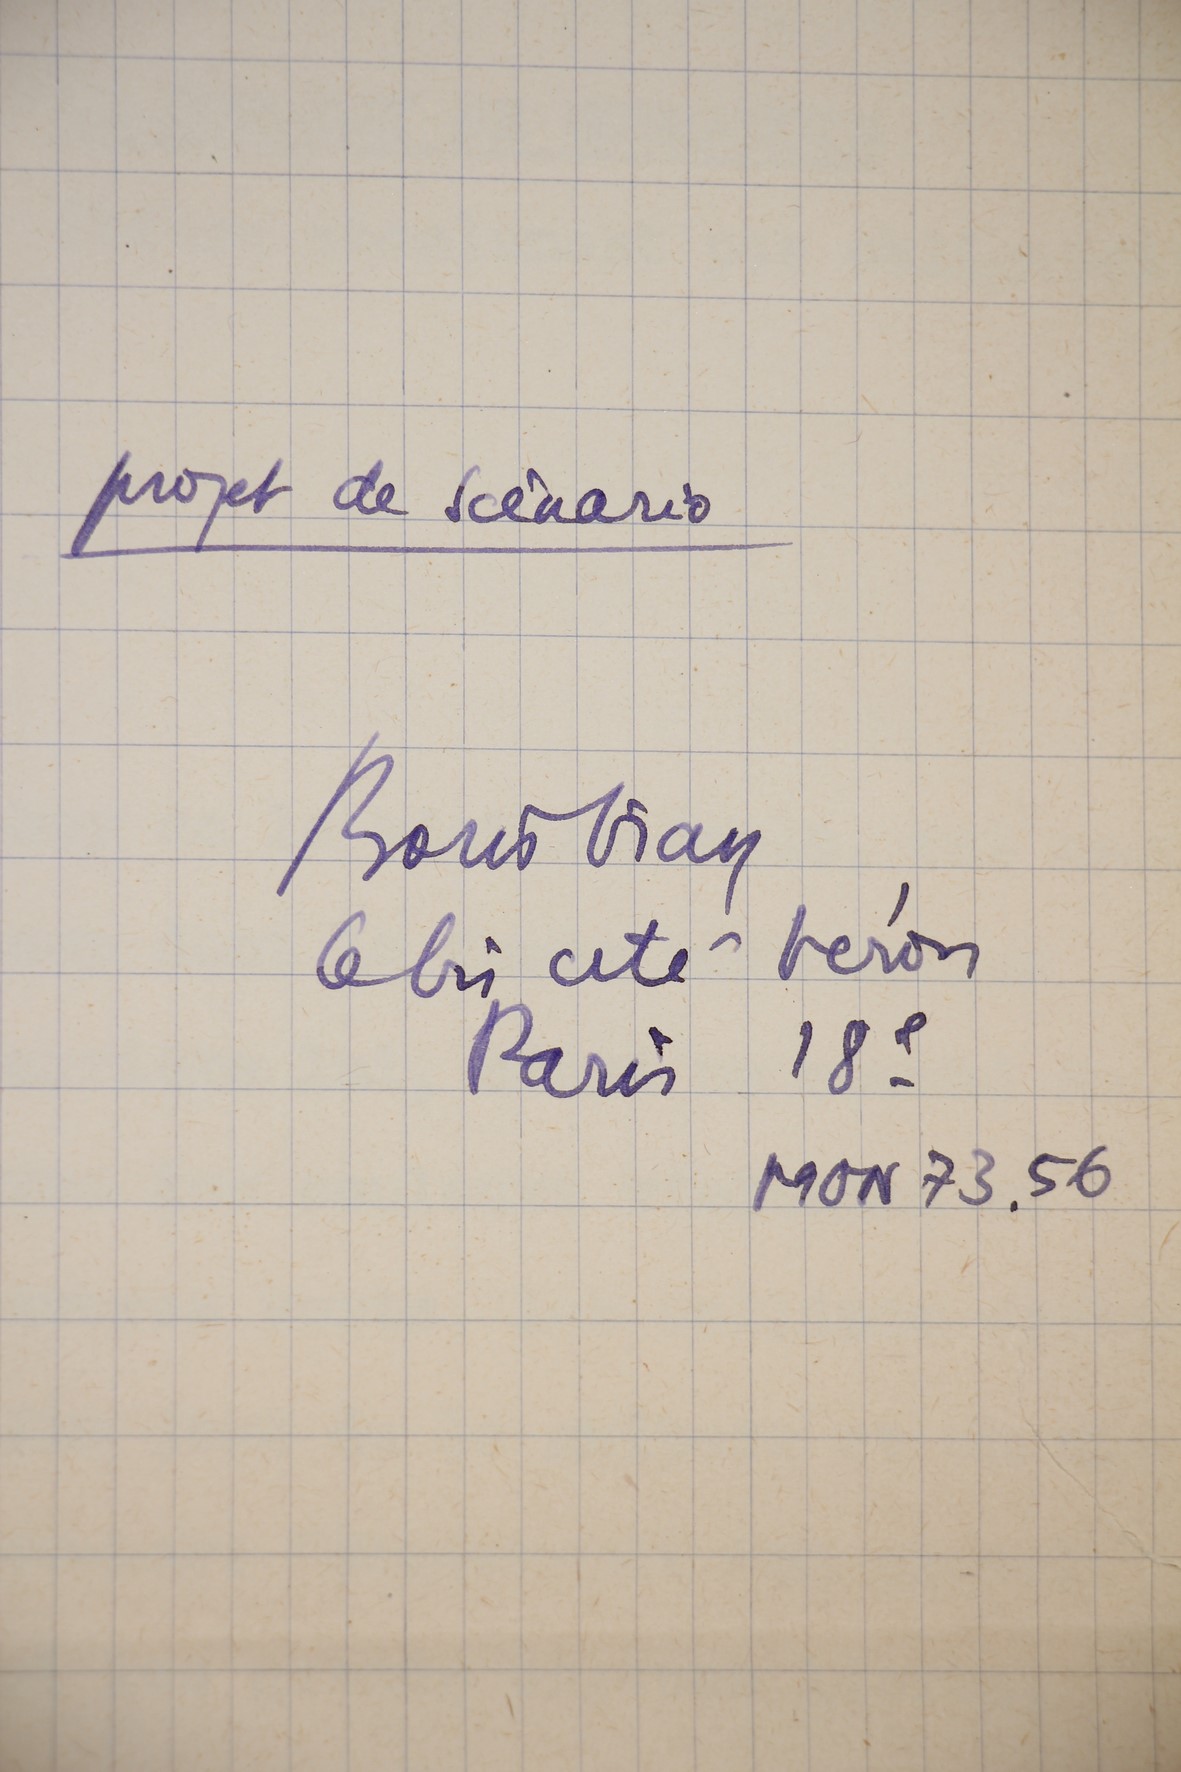 projet de scénario
Boris Vian
6 bis cité Véron
Paris 18e
MON 73.56